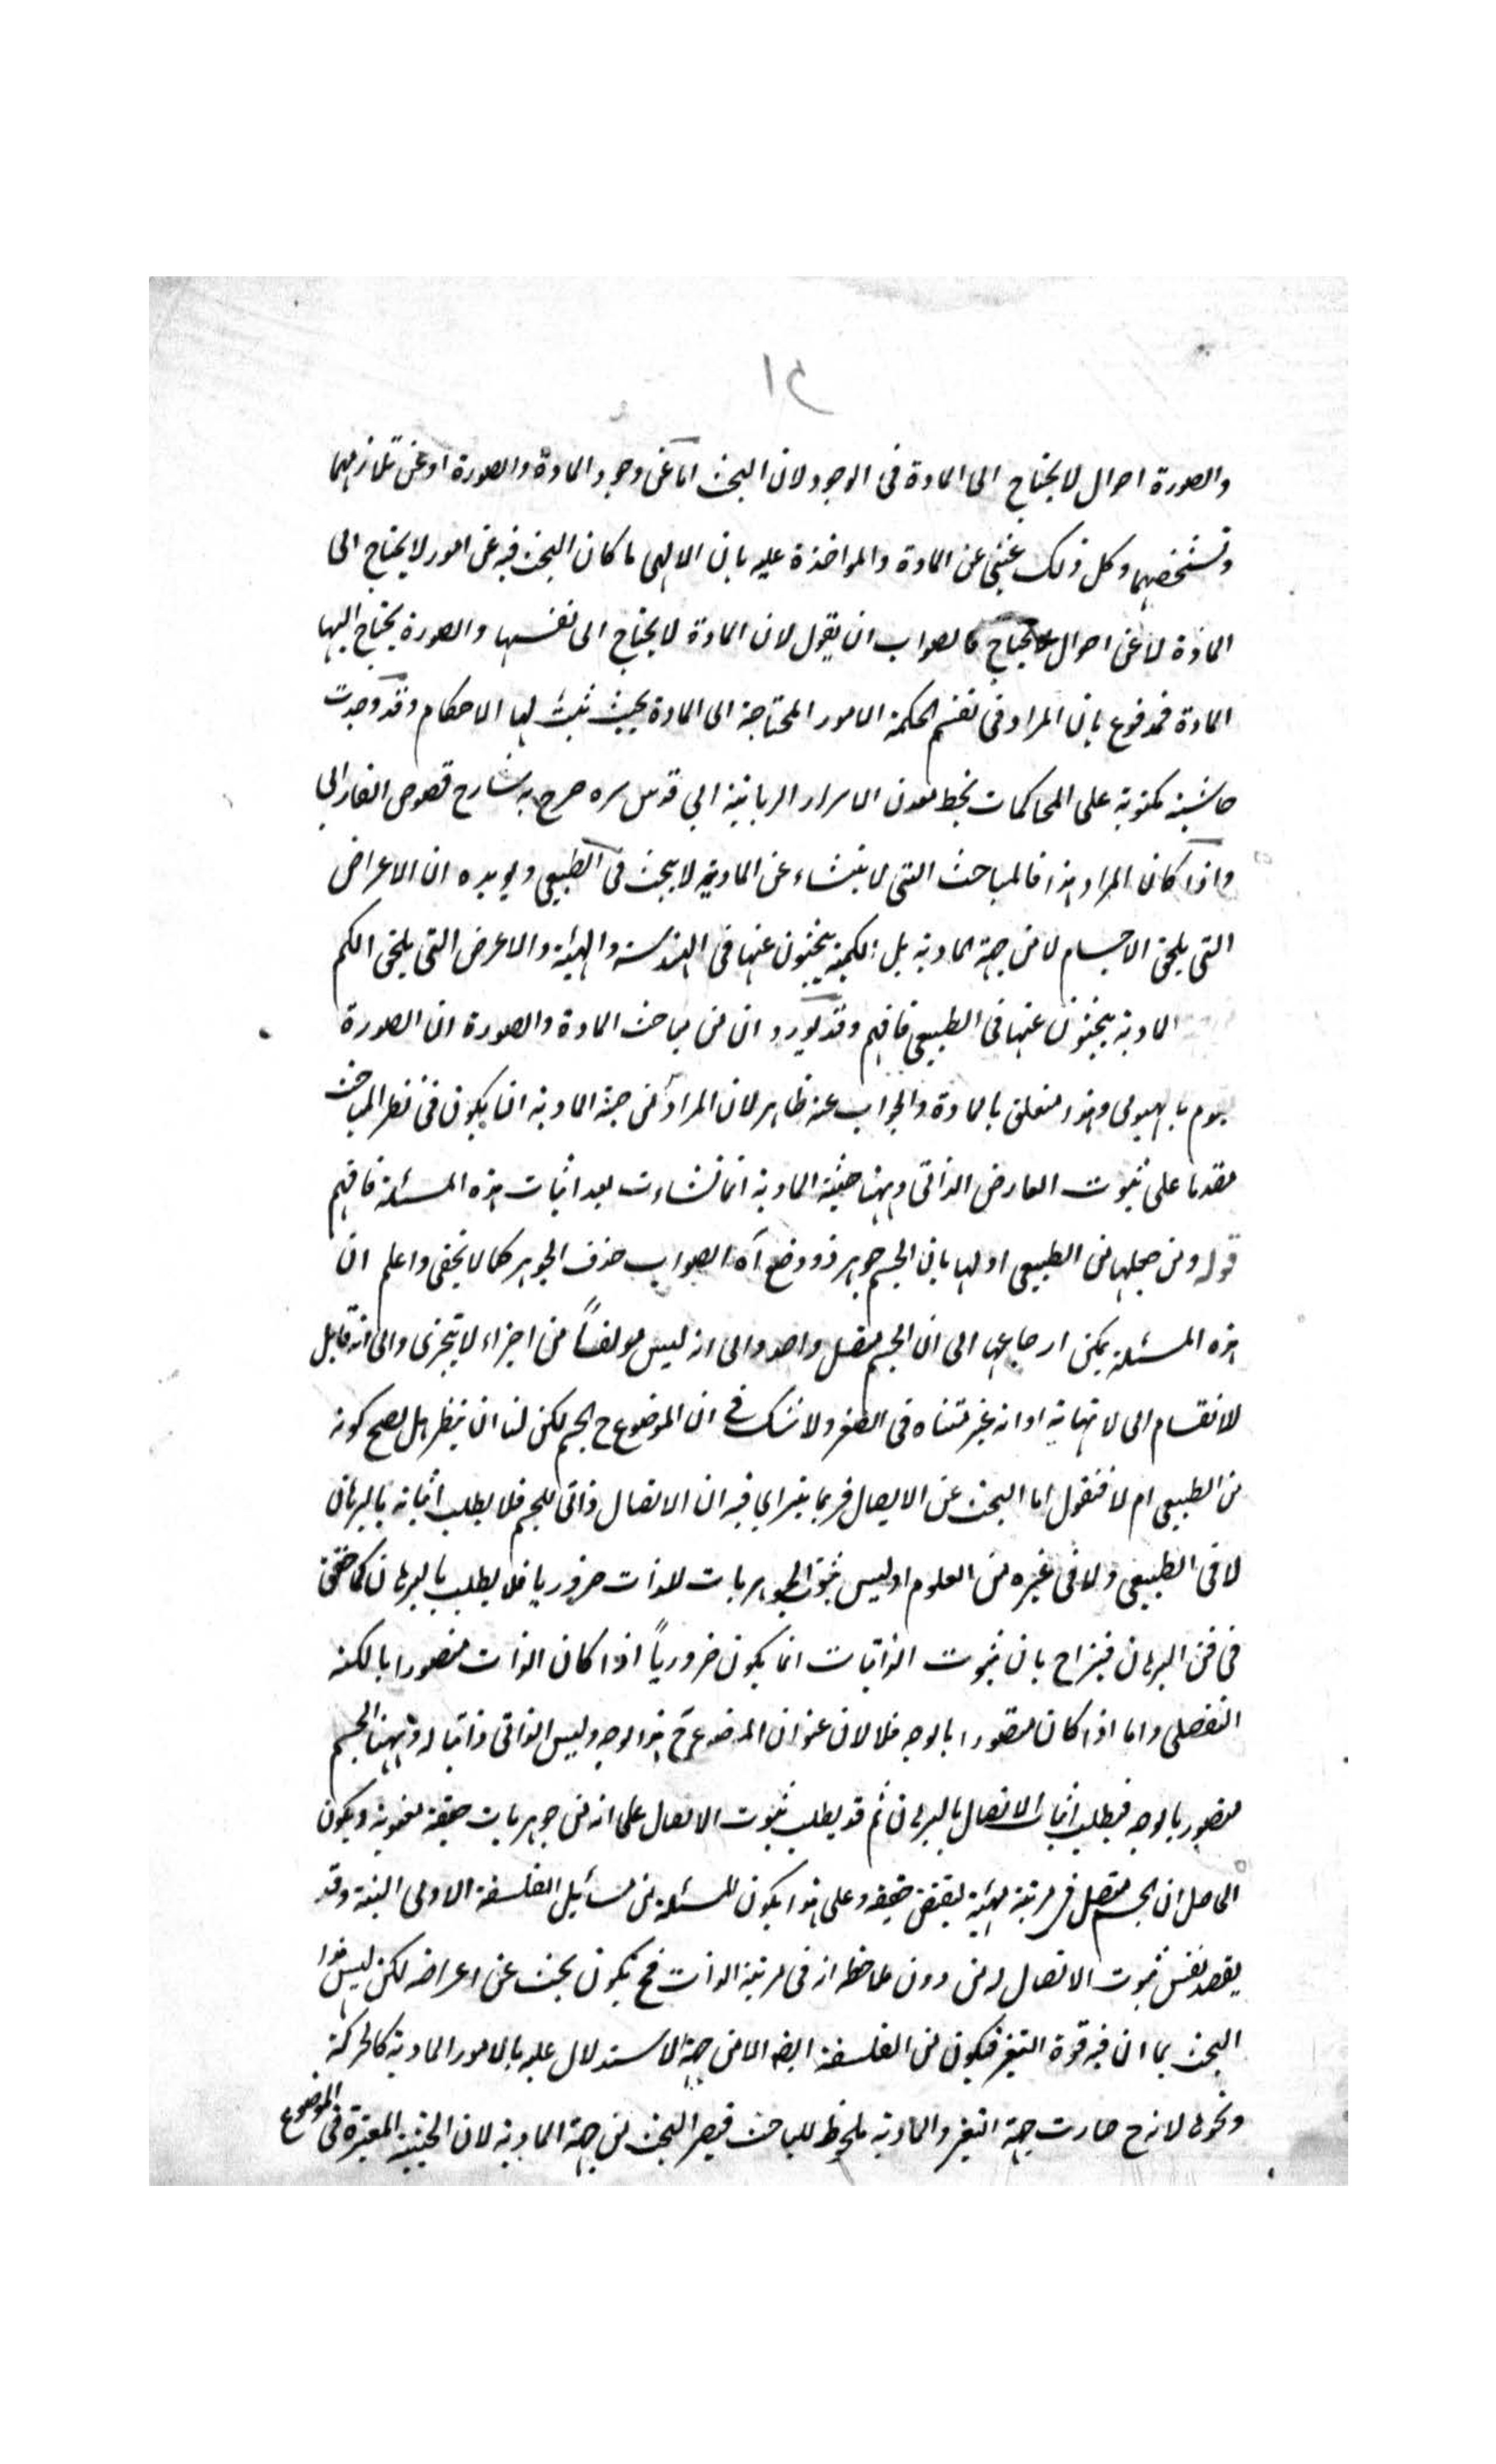 ١٥
والصورة احوال لا يحتاج الى المادة فى الوجود لان البحث اما عن وجود المادة والصورة او عن تلازمهما
وتشخصهما وكل ذلك غنى عن المادة والمواخذة عليه بان الالهى ما كان البحث فيه عن امور لا يحتاج الى
المادة لا عن احوال يحتاج فالصواب ان يقول لان المادة لا يحتاج الى نفسها والصورة يحتاج اليها
المادة فمدفوع بان المراد فى تقسيم الحكمة الامور المحتاجة الى المادة بحيث يثبت لها الاحكام وقد وجدت
حاشية مكتوبة على المحاكمات بخط معدن الاسرار الربانية ابي قدس سره صرح به شارح فصوص الفارابى
واذا كان المراد هذا فالمباحث التى لا ينشاء عن المادية لا يبحث فى الطبيعى ويويده ان الاعراض
التى يلحق الاجسام لا من جهة المادية بل الكمية يبحثون عنها فى الهندسة والهيئة والاعرض التى يلحق الكم
المادية يبحثون عنها فى الطبيعى فافهم وقد يورد ان من مباحث المادة والصورة ان الصورة
يقوم بالهيولى وهذا متعلق بالمادة والجواب عنه ظاهر لان المراد من جهة المادية ان يكون فى نظر المباحث
مقدما على ثبوت العارض الذاتى وههنا حيثية المادية انما نشاءت بعد اثبات هذه المسئلة فافهم
قوله ومن جعلها من الطبيعى اولها بان الجسم جوهر ذو وضع آه الصواب حذف الجوهر كما لا يخفى واعلم ان
هذه المسئلة يمكن ارجاعها الى ان الجسم متصل واحد والى انه ليس مولفاً من اجزاء لا تتجزى والى انه قابل
للانقسام الى لا نهاية او انه غير متناه فى الصغر ولا شك فى ان الموضوع ح الجسم لكن لنا ان ينظر هل يصح كونه
من الطبيعى ام لا فنقول اما البحث عن الاتصال فربما يتراي فيه ان الاتصال ذاتى للجسم فلا يطلب اثباته بالبرهان
لا فى الطبيعى ولا فى غيره من العلوم او ليس ثبوت الجوهريات للذات ضروريا فلا يطلب بالبرهان كما حقق
فى فن البرهان فيزاح بان ثبوت الذاتيات انما يكون ضرورياً اذا كان الذات متصورا بالكنه
التفصلى واما اذا كان متصورا بالوجه فلا لان عنوان الموضوع ح هذا الوجه وليس الذاتى ذاتيا له وههنا الجسم
متصور بالوجه فيطلب اثبات الاتصال بالبرهان ثم قد يطلب ثبوت الاتصال على انه من جوهريات حقيقة مقومة ويكون
الحاصل ان الجسم متصل فى مرتبة مهية بنقض حقيقة وعلى هذا يكون المسئلة من مسائل الفلسفة الاولى البتة وقد
يقصد نفس ثبوت الاتصال له من دون ملاحظة انه فى مرتبة الذات فح يكون بحث عن اعراضه لكن ليس هذا
البحث بما ان فيه قوة التغير فيكون من الفلسفة ايضا الا من جهة الاستدلال عليه بالامور المادية كالحركة
ونحوها لانه ح صارت جهة التغير والمادية ملحوظ للباحث فيصر البحث من جهة المادية لان الحيثية المعتبرة فى الموضوع